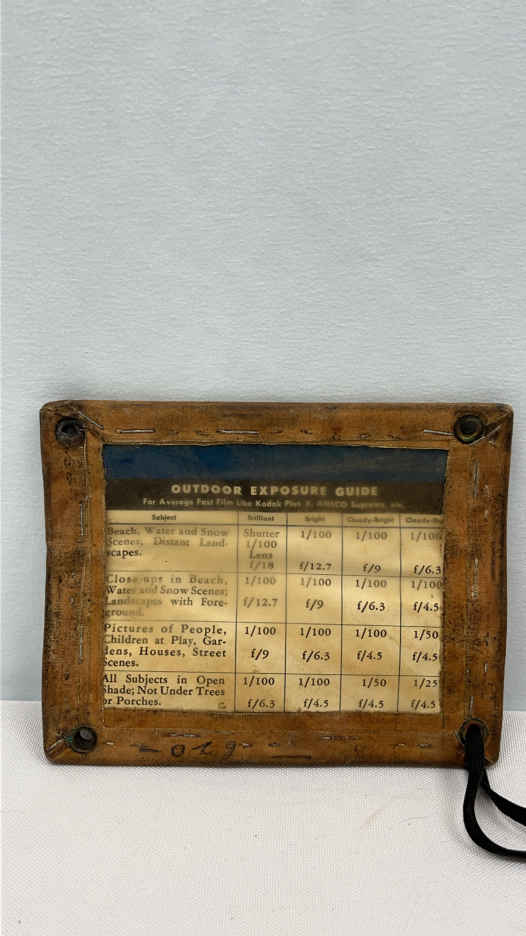 OUTDOOR EXPOSURE GUIDE
For Average Fast Film Like Kodak Plus X, ANSCO Supreme, etc.
Subject Brilliant Bright Cloudy-Bright
Beach, Water and Snow Scenes; Distant Landscapes. Shutter 1/100 Lens f/18 1/100 f/12.7 1/100 f/9 1/100 f/6.3
Close-ups in Beach, Water and Snow Scenes; Landscapes with Foreground. 1/100 f/12.7 1/100 f/9 1/100 f/6.3 1/100 f/4.5
Pictures of People, Children at Play, Gardens, Houses, Street Scenes. 1/100 f/9 1/100 f/6.3 1/100 f/4.5 1/50 f/4.5
All Subjects in Open Shade; Not Under Trees or Porches. 1/100 f/6.3 1/100 f/4.5 1/50 f/4.5 1/25 f/4.5